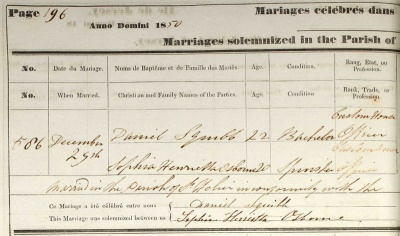 Page 196
Mariages célébrés dans
Anno Domini 1850
Marriages solemnized in the Parish of
No. Date du Mariage. Noms de Baptême et de Famille des Mariés. Age. Condition. Rang, Etat, ou Profession.
No. When Married. Christian and Family Names of the Parties. Age. Condition Rank, Trade, or Profession.
Custom House
586 December Daniel Squibb 22 Bachelor Officer
29th Sophia Henrietta Osborne 20 Spinster
Married in the Parish of St Helier in conformity with the
Ce Mariage a été célébré entre nous Daniel Squibb
This Marriage was solemnized between us Sophia Henrietta Osborne